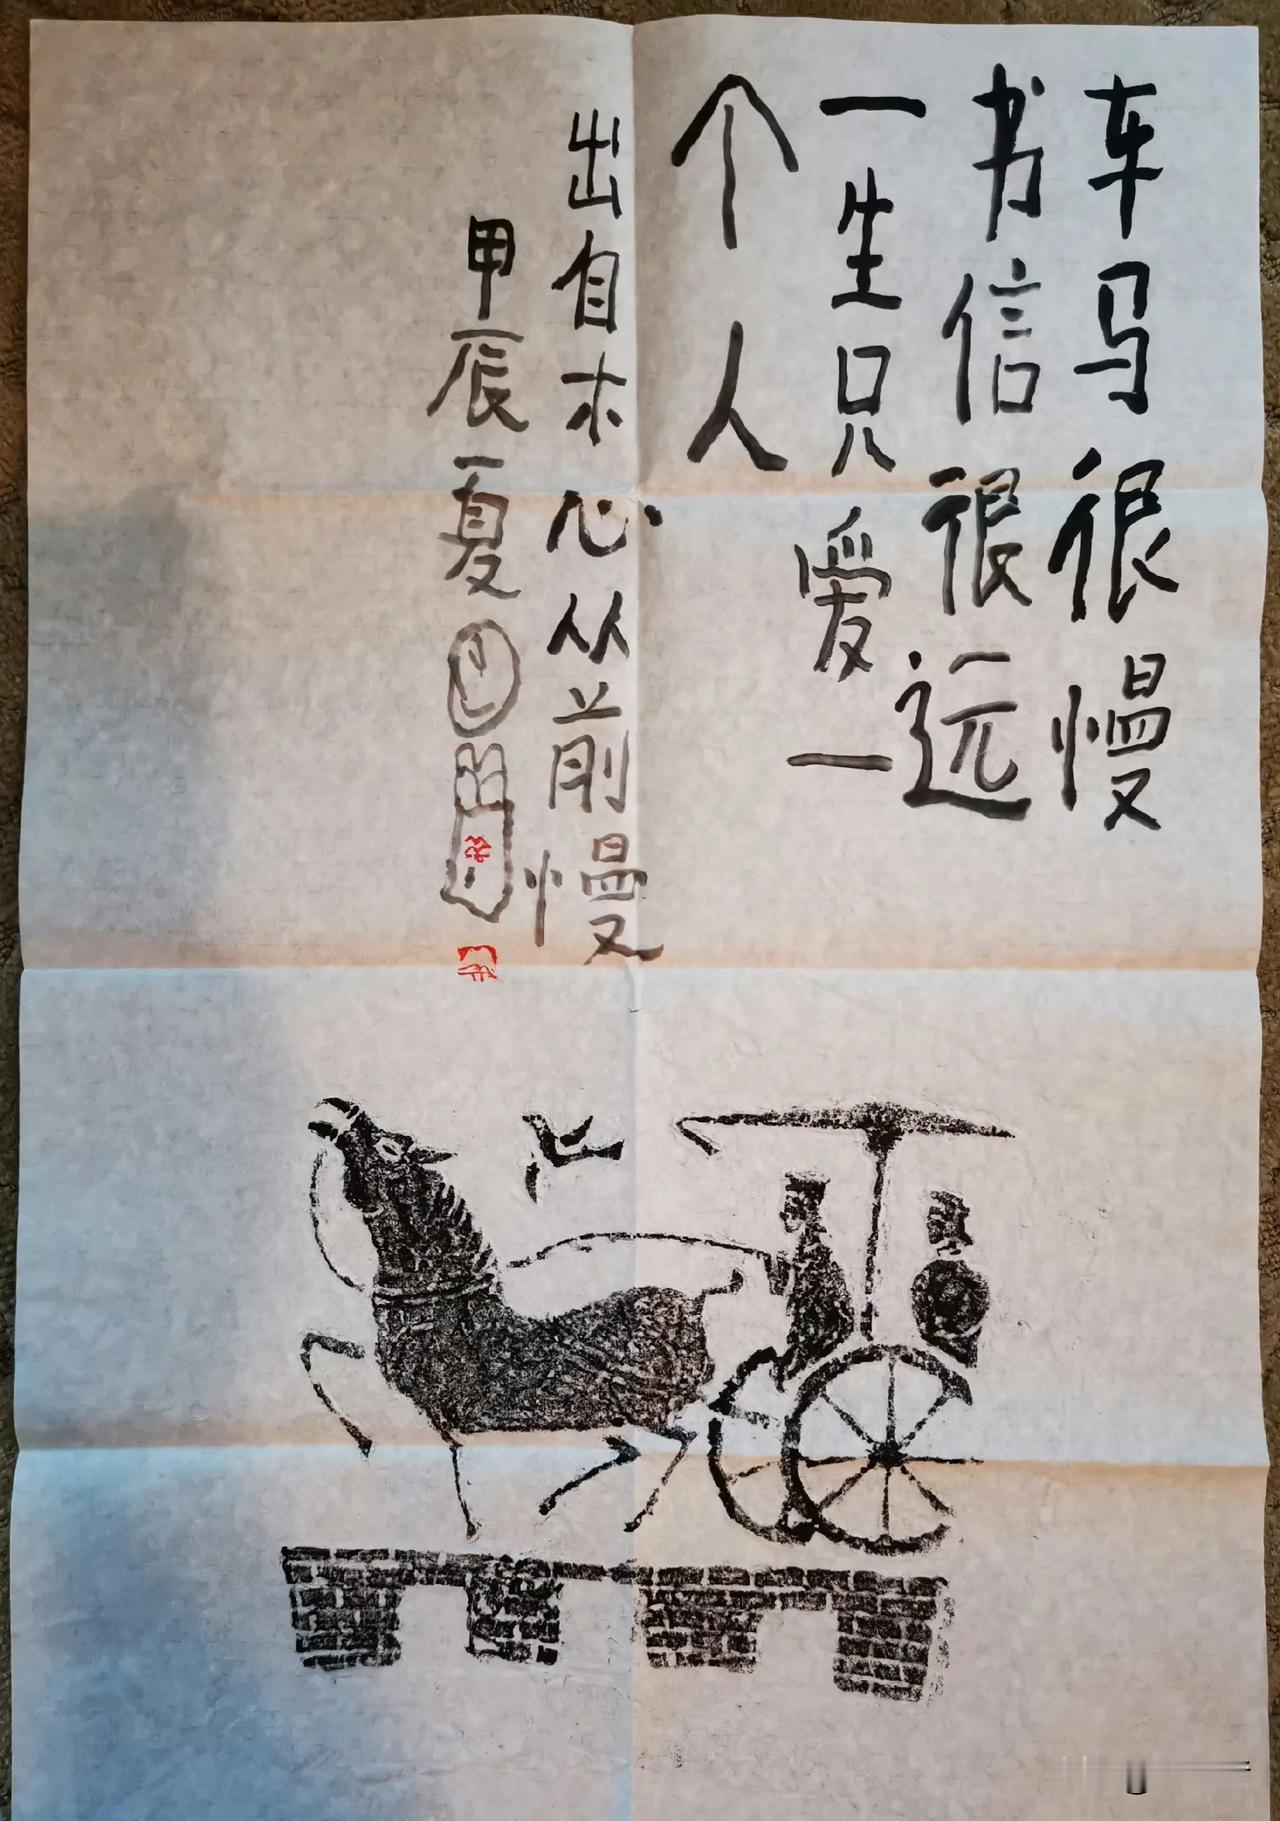 车马很慢
书信很远
一生只爱一
个人
出自木心从前慢
甲辰夏